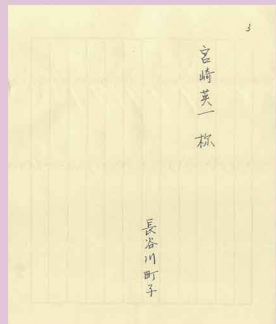 3
宮崎英一 様
長谷川町子